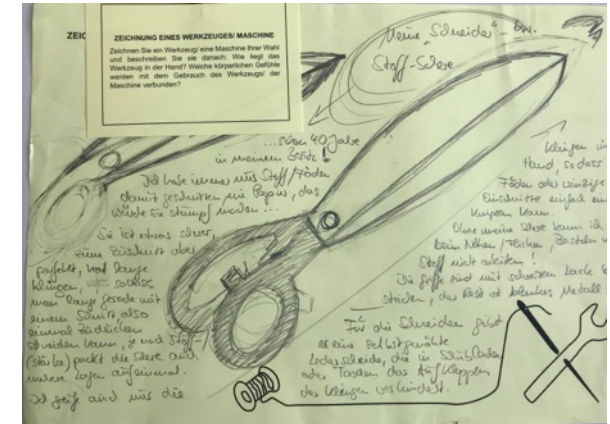 ZEIC
ZEICHNUNG EINES WERKZEUGES/ MASCHINE
Zeichnen Sie ein Werkzeug/ eine Maschine Ihrer Wahl
und beschreiben Sie sie danach: Wie liegt das
Werkzeug in der Hand? Welche körperlichen Gefühle
werden mit dem Gebrauch des Werkzeugs/ der
Maschine verbunden?
Meine "Schneider"- bzw.
Stoff-Schere
...schon 40 Jahre
in meinem Besitz!
Ich habe immer nur Stoff/Fäden
damit geschnitten, nie Papier, das
würde sie stumpf machen...
Sie ist etwas schwer,
zum Zuschnitt aber
perfekt, lange
Klingen, sodass
man lange gerade mit
einem Schnitt also
einmal Zudrücken
schneiden kann, je nach Stoff-
(stärke) packt die Schere auch
mehrere Lagen auf einmal.
Ich greife auch mir die
Klingen in
Hand, sodass
Fäden oder winzige
Einschnitte einfach
knipsen kann.
Ohne meine Schere kann ich
beim Nähen/Flicken, Basteln
Stoff nicht arbeiten!
Die Griffe sind mit schwarzem Lack
der Rest ist blankes Metall
Für die Schneiden gibt
es eine selbstgenähte
Lederscheide, die in Schubladen
oder Taschen das Aufklappen
der Klingen verhindert.